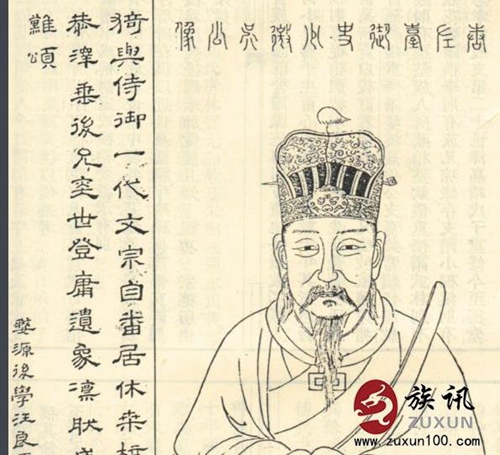 唐左臺御史少微吳公像
猗與侍御一代文宗自番居休桑梓
恭澤垂後昆奕世登庸遺象凛肰盛
難頌
婺源後學汪良
族讯
ZUXUN
www.zuxun100.com